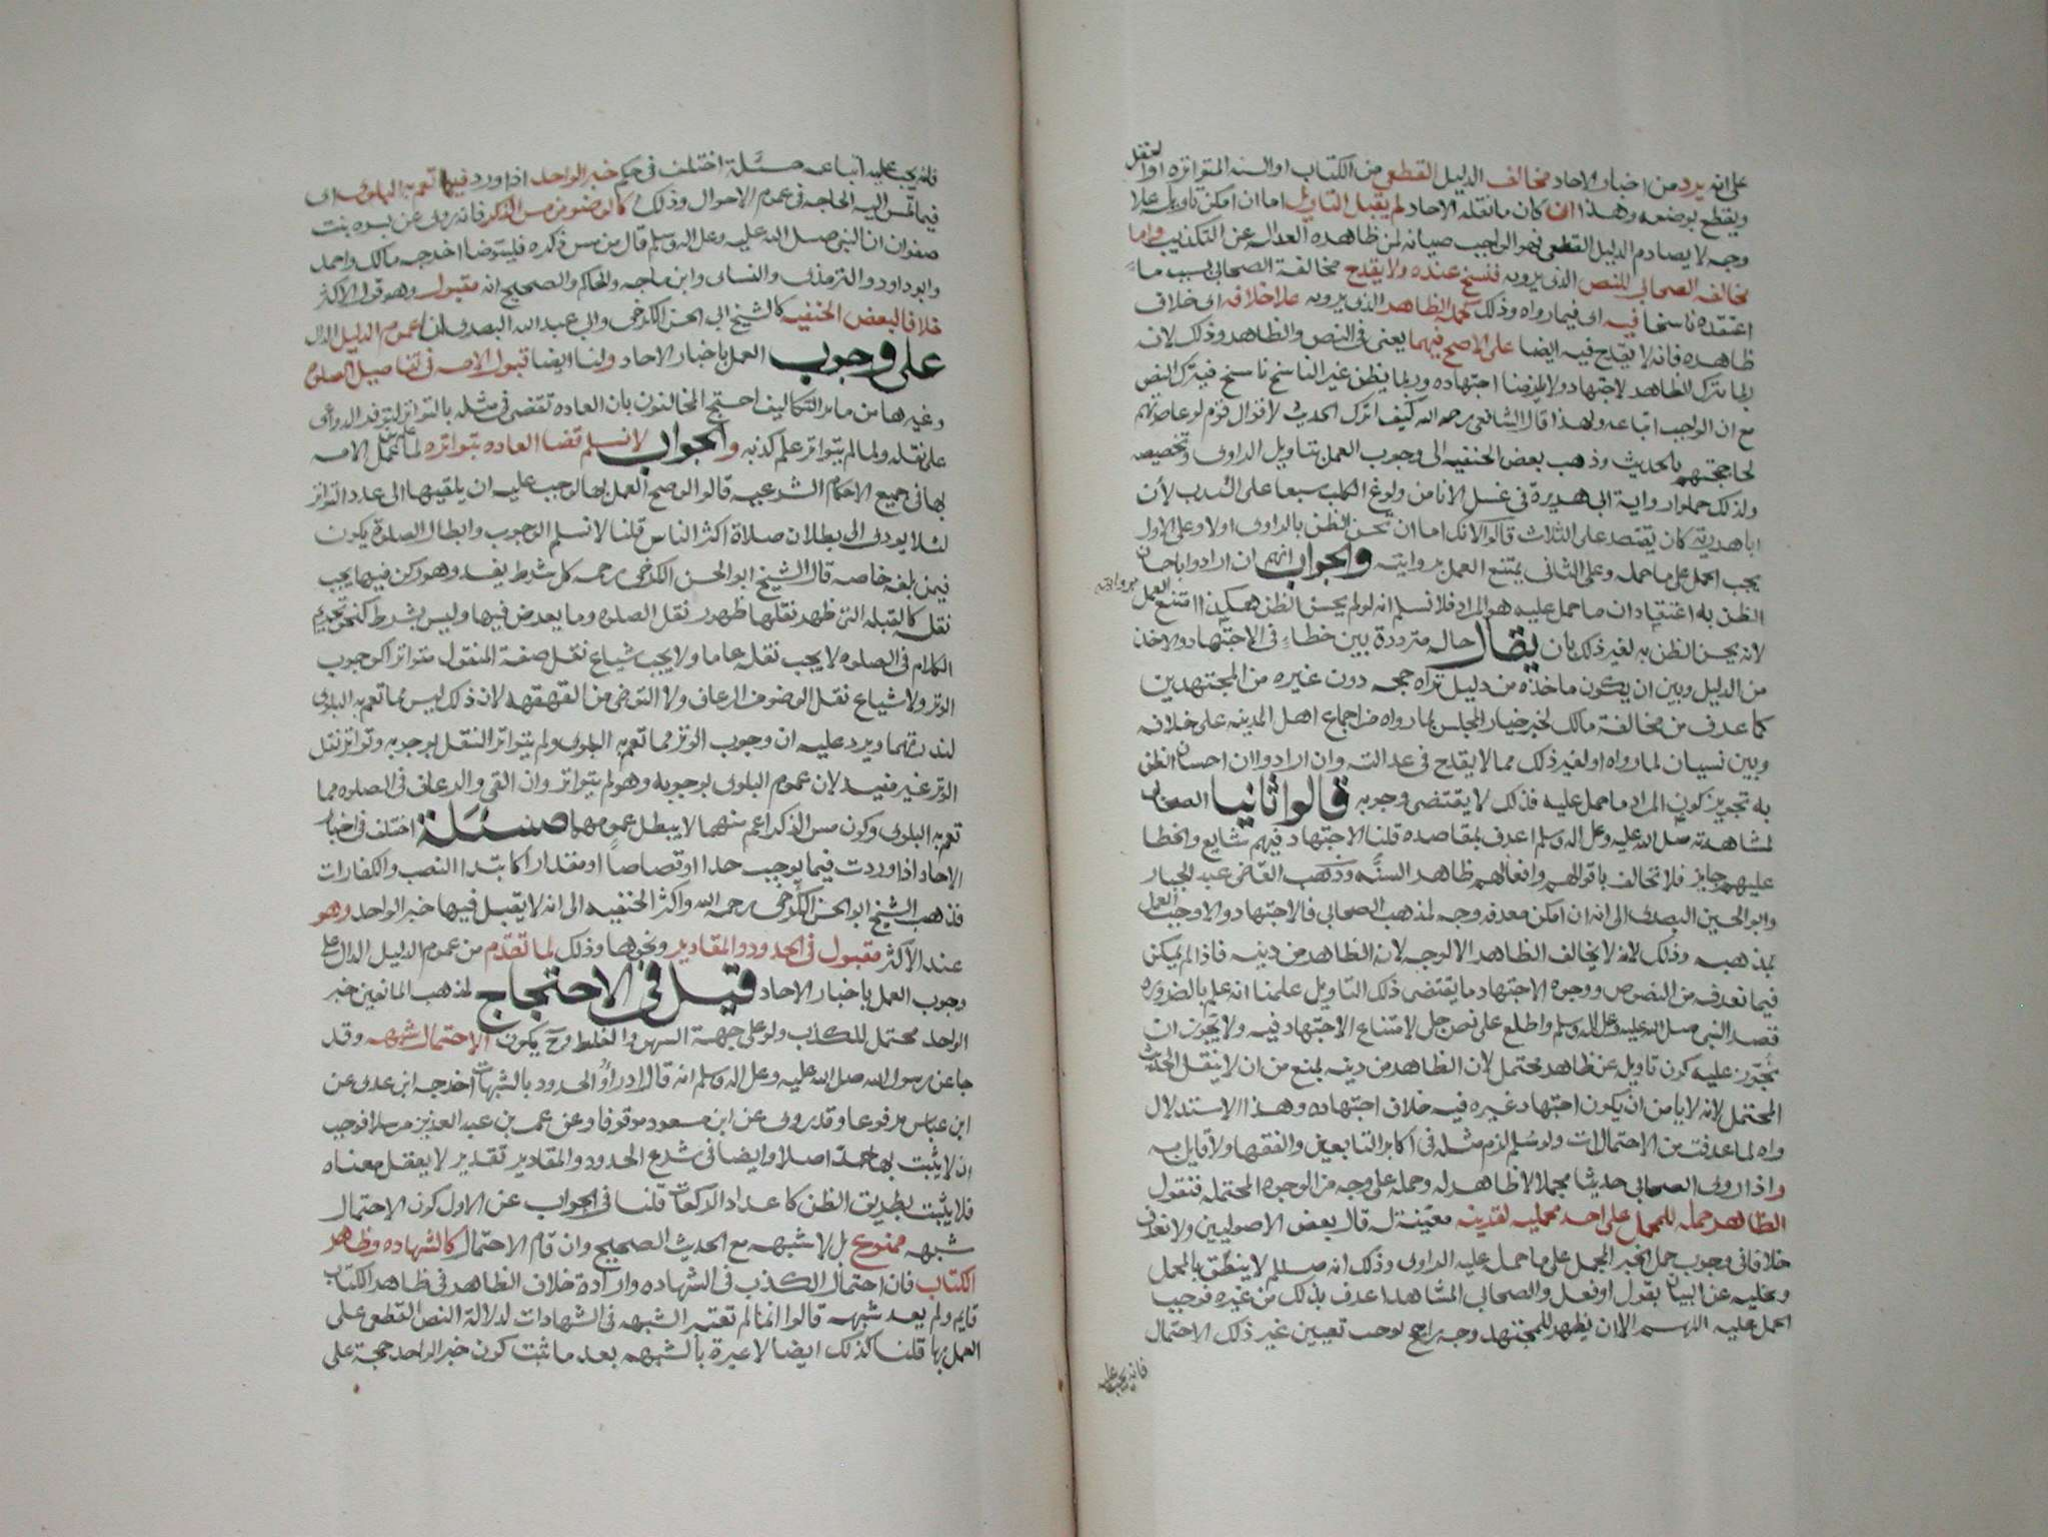 على انه يرد من اخبار الاحاد مخالف الدليل القطعي من الكتاب او السنه المتواتره او العقل
ويقطع بوضعه وهذا ان كان ما نقله الاحاد لم يقبل التاويل اما ان امكن تاويله على
وجه لا يصادم الدليل القطعي فهو الواجب صيانه لمن ظاهره العداله عن التكذيب واما
مخالفه الصحابي للنص الذي يرويه فنسخ عنده ولا يقدح مخالفة الصحابي بسبب ما
اعتقده ناسخا فيه اى فيما رواه وذلك كحمله الظاهر الذي يرويه على خلافه اى خلاف
ظاهره فانه لا يقدح فيه ايضا على الاصح فيهما يعنى في النص والظاهر وذلك لانه
ربما ترك الظاهر لاجتهاد ولا يلزمنا اجتهاده وربما يظن غير الناسخ ناسخ فيترك النص
مع ان الواجب اتباعه ولهذا قال الشافعي رحمه الله كيف اترك الحديث لاقوال قوم لو عاصرتهم
لحاججتهم بالحديث وذهب بعض الحنفيه الى وجوب العمل بتاويل الراوى وتخصيصه
ولذلك حملوا رواية ابى هريرة في غسل الانا من ولوغ الكلب سبعا على الندب لأن
ابا هريرة كان يقتصر على الثلاث قالوا لانك اما ان تحسن الظن بالراوى اولا وعلى الاول
يجب الحمل على ما حمله وعلى الثانى يمتنع العمل بروايته والجواب انهم ان ارادوا باحسان
الظن به اعتقاد ان ما حمل عليه هو المراد فلا نسلم انه لو لم يحسن الظن هكذا امتنع العمل بروايته
لانه يحسن الظن به لغير ذلك بان يقال حاله مترددة بين خطاء في الاجتهاد والاخذ
من الدليل وبين ان يكون ماخذه من دليل تراه حجه دون غيره من المجتهدين
كما عرف من مخالفة مالك لخبر خيار المجلس لما رواه من اجماع اهل المدينه على خلافه
وبين نسيان لما رواه او لغير ذلك مما لا يقدح في عدالته وان ارادوا ان احسان الظن
به تجويز كون المراد ما حمل عليه فذلك لا يقتضى وجوبه قالوا ثانيا الصحابى
لمشاهدته صلى الله عليه وعلى اله وسلم اعرف بمقاصده قلنا الاجتهاد فيهم شايع والخطا
عليهم جايز فلا تخالف باقوالهم وافعالهم ظاهر السنة وذهب القاضى عبد الجبار
وابو الحسين البصرى الى انه ان امكن معرفه وجه لمذهب الصحابي فالاجتهاد والا وجب العمل
بمذهبه وذلك لانه لا يخالف الظاهر الا لوجه لان الظاهر من دينه فاذا لم يمكن
فيما نعرفه من النصوص ووجوه الاجتهاد ما يقتضى ذلك التاويل علمنا انه علم بالضروره
قصد النبى صلى الله عليه وعلى اله وسلم واطلع على نص جلى لامتناع الاجتهاد فيه ولا يجوز ان
نجوز عليه كون تاويله عن ظاهر محتمل لان الظاهر من دينه يمنع من ان لا ينقل الحديث
المحتمل لانه لا يامن ان يكون اجتهاد غيره فيه خلاف اجتهاده وهذا الاستدلال
واه لما عرفت من الاحتمالات ولو سلم لزم مثله في اكابر التابعين والفقها ولا قايل به
واذا روى الصحابى حديثا مجملا لا ظاهر له وحمله على وجه من الوجوه المحتمله فنقول
الظاهر حمله للمجمل على احد محمليه لقرينه معينة له قال بعض الاصوليين ولا نعرف
خلافا في وجوب حمل الخبر المجمل على ما حمل عليه الراوى وذلك انه صللم لا ينطق بالمجمل
ويخليه عن البيان بقول او فعل والصحابي المشاهد اعرف بذلك من غيره فوجب
الحمل عليه اللهم الا ان يظهر للمجتهد وجه راجح يوجب تعيين غير ذلك الاحتمال
فانه يجب عليه
فانه يجب عليه اتباعه مسئلة اختلف في حكم خبر الواحد اذا ورد فيما تعم به البلوى اى
فيما تمس اليه الحاجه في عموم الاحوال وذلك كالوضو من مس الذكر فانه روى عن بسره بنت
صفوان ان النبي صلى الله عليه وعلى اله وسلم قال من مس ذكره فليتوضا اخرجه مالك واحمد
وابو داود والترمذى والنساى وابن ماجه والحاكم والصحيح انه مقبول وهو قول الاكثر
خلافا لبعض الحنفيه كالشيخ ابى الحسن الكرخى وابى عبد الله البصرى لنا عموم الدليل الدال
على وجوب العمل باخبار الاحاد ولنا ايضا قبول الامه في تفاصيل الصلوة
وغيرها من ساير التكاليف احتج المخالفون بان العاده تقضى في مثله بالتواتر لتوفر الدواعى
على نقله ولما لم يتواتر علم كذبه والجواب لا نسلم قضا العاده بتواتره لما علم من عمل الامه
بها في جميع الاحكام الشرعيه قالوا لو صح العمل بها لوجب عليه ان يلقيها الى عدد التواتر
لئلا يودى الى بطلان صلاة اكثر الناس قلنا لا نسلم الوجوب وابطال الصلوة يكون
فيمن بلغه خاصه قال الشيخ ابو الحسن الكرخى رحمه كل شرط يفسد وهو ركن فيها يجب
نقله كالقبله التى ظهر نقلها ظهور نقل الصلوه وما يعرض فيها وليس بشرط كنحو تحريم
الكلام في الصلوه لا يجب نقله عاما ولا يجب شياع نقل صفة المنقول متواترا كوجوب
الوتر ولا شياع نقل الوضو من الرعاف ولا التوضى من القهقهه لان ذلك ليس مما تعم به البلوى
لندرتهما ويرد عليه ان وجوب الوتر مما تعم به البلوى ولم يتواتر النقل بوجوبه وتواتر نقل
الوتر غير مفيد لان عموم البلوى بوجوبه وهو لم يتواتر وان القى والرعاف في الصلوه مما
تعم به البلوى وكون مس الذكر اعم منهما لا يبطل عمومهما مسئلة اختلف في اخبار
الاحاد اذا وردت فيما يوجب حدا او قصاصا او مقدارا كابتدا النصب والكفارات
فذهب الشيخ ابو الحسن الكرخى رحمه الله واكثر الحنفيه الى انه لا يقبل فيها خبر الواحد وهو
عند الاكثر مقبول في الحدود والمقادير ونحوها وذلك لما تقدم من عموم الدليل الدال على
وجوب العمل باخبار الاحاد قيل في الاحتجاج لمذهب المانعين خبر
الواحد محتمل للكذب ولو على جهة السهو والغلط وح يكون الاحتمال شبهه وقد
جا عن رسول الله صلى الله عليه وعلى اله وسلم انه قال ادراوا الحدود بالشبهات اخرجه ابن عدى عن
ابن عباس مرفوعا وقد روى عن ابن مسعود موقوفا وعن عمر بن عبد العزيز مرسلا فوجب
ان لا يثبت بها حد اصلا وايضا في شرع الحدود والمقادير تقدير لا يعقل معناه
فلا يثبت بطريق الظن كاعداد الركعات قلنا في الجواب عن الاول كون الاحتمال
شبهه ممنوع بل لا شبهه مع الحديث الصحيح وان قام الاحتمال كالشهاده وظاهر
الكتاب فان احتمال الكذب في الشهاده وارادة خلاف الظاهر في ظاهر الكتاب
قايم ولم يعد شبهه قالوا انما لم تعتبر الشبهه في الشهادات لدلالة النص القطعى على
العمل بها قلنا كذلك ايضا لا عبرة بالشبهه بعد ما ثبت كون خبر الواحد حجة على